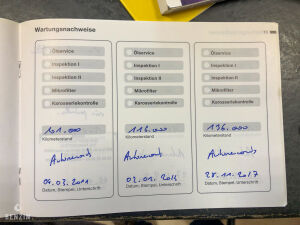 Wartungsnachweise
Ölservice
Inspektion I
Inspektion II
Mikrofilter
Karosseriekontrolle
101.000
Kilometerstand
04.03.2011
Datum, Stempel, Unterschrift
Ölservice
Inspektion I
Inspektion II
Mikrofilter
Karosseriekontrolle
Kilometerstand
Datum, Stempel, Unterschrift
Ölservice
Inspektion I
Inspektion II
Mikrofilter
Karosseriekontrolle
136.000
Kilometerstand
28.11.2017
Datum, Stempel, Unterschrift
BENZIN